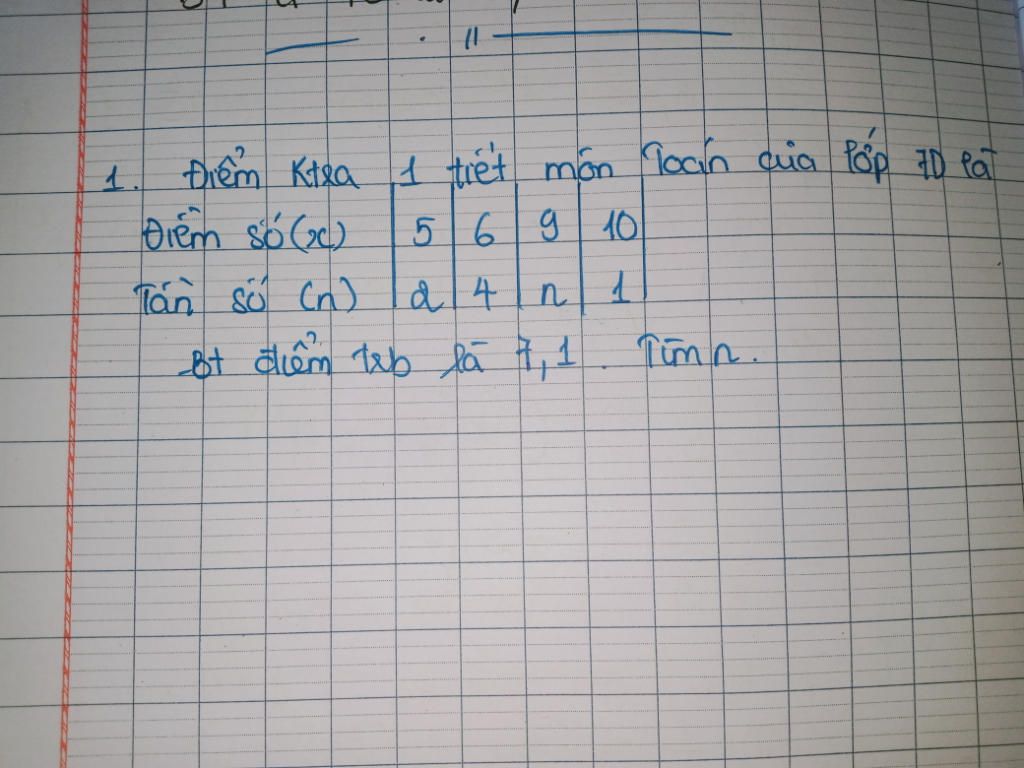 1. Điểm Ktra 1 tiết môn Toán của lớp 7D là
Điểm số (x) 5 6 9 10
Tần số (n) 2 4 n 1
Bt điểm trb là 7,1. Tìm n.